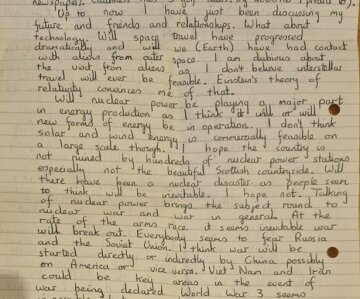 newspapers.
Up to now I have just been discussing my
future and friends and relationships. What about
technology. Will space travel have progressed
dramatically and will we (Earth) have had contact
with aliens from outer space. I am dubious about
the visit from aliens as I don't believe interstellar
travel will ever be feasible. Einstein's theory of
relativity convinces me of that.
Will nuclear power be playing a major part
in energy production as I think it will or will
new forms of energy be in operation. I don't think
solar and wind energy is commercially feasible on
a large scale though. I hope the country is
not ruined by hundreds of nuclear power stations
especially not the beautiful Scottish countryside. Will
there have been a nuclear disaster as people seem
to think will be inevitable. I hope not. Talking
of nuclear power brings the subject round to
nuclear war and war in general. At the
rate of the arms race it seems inevitable war
will break out. Everybody seems to fear Russia
and the Soviet Union. I think war will be
started directly or indirectly by China possibly
on America or vice versa. Viet Nam and Iran
could be key areas in the event of
war being declared. World War 3 seems